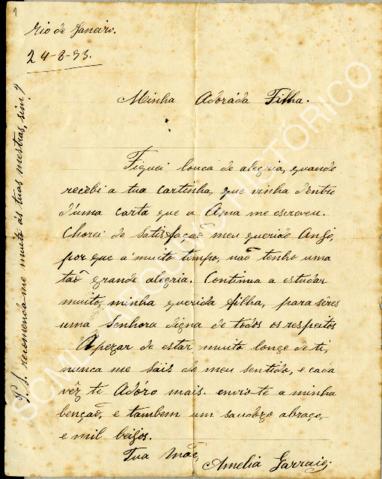 Rio de Janeiro.
24-8-93.
Minha Adorada Filha.
Fiquei louca de alegria, quando
recebi a tua cartinha, que vinha dentro
d'uma carta que a Anna me escreveu.
Chorei de satisfação meu querido Anjo,
por que a muito tempo, não tenho uma
tão grande alegria. Continua a estudar
muito, minha querida filha, para seres
uma Senhora digna de todos os respeitos
Apezar de estar muito longe de ti,
nunca me sais do meu sentido, e cada
vêz te Adóro mais. envio-te a minha
benção, e tambem um saudozo abraço,
e mil beijos.
Tua Mãe,
Amelia
P.S. recomenda-me muito ás tuas mestras, sim?